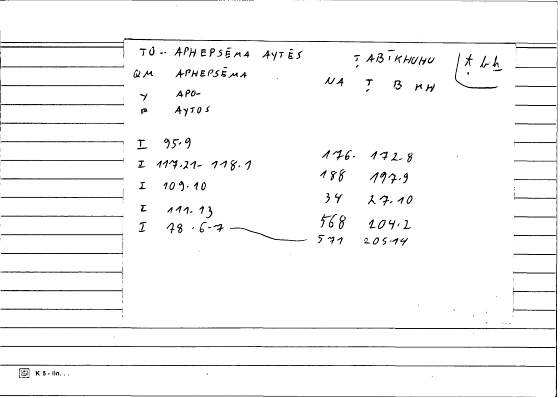 TO - APHEPSĒMA AYTĒS ṬABĪKHUHU ṭ b kh
QM APHEPSĒMA NA Ṭ B KH
Y APO-
P AYTOS
I 95.9 176. 172.8
I 117.21- 118.1 188 197.9
I 109.10 34 27.10
I 111.13 568 204.2
I 78.6-7 571 205.14
K 5 - lin...